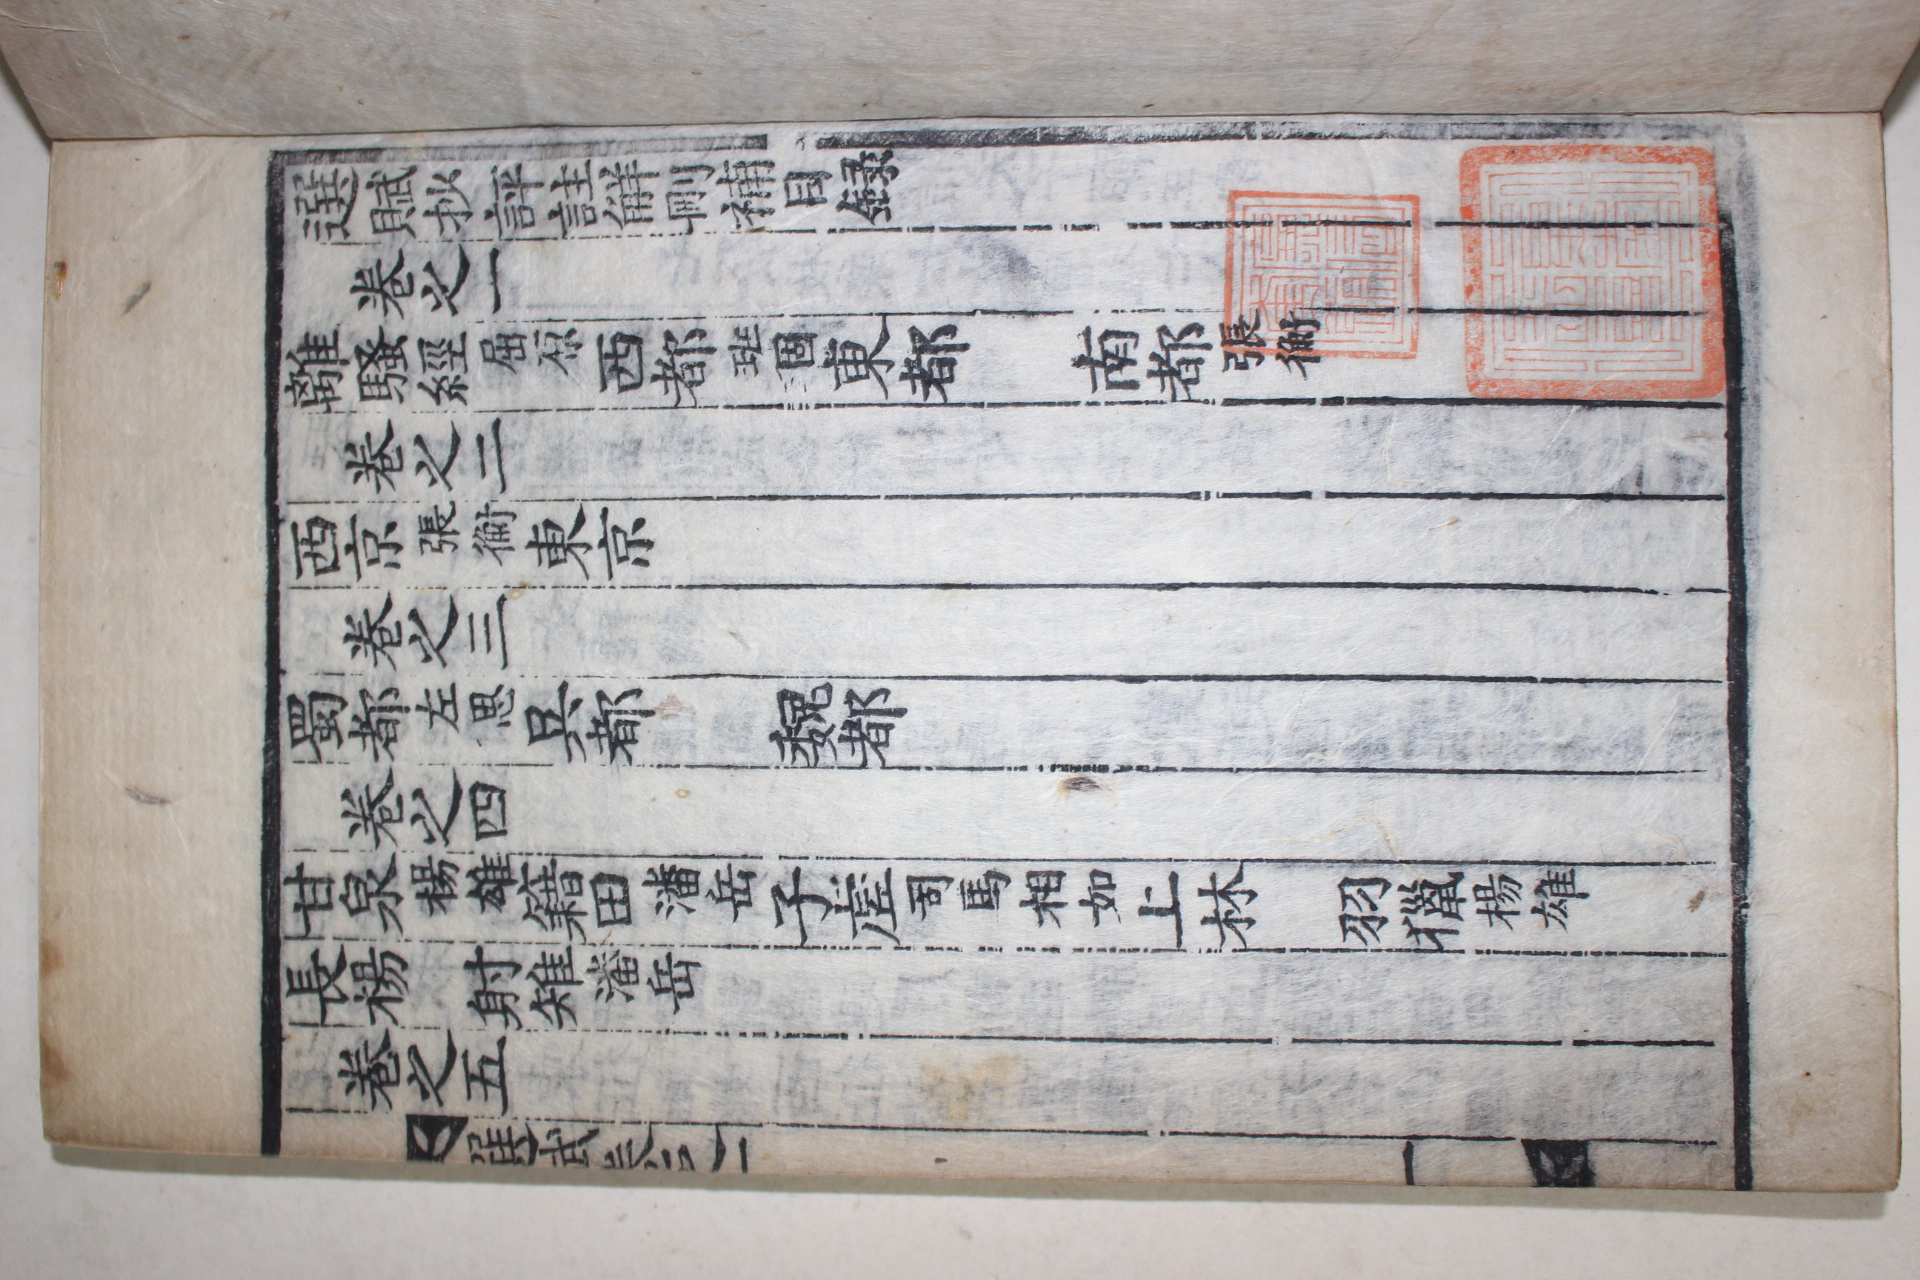 選賦抄評註解刪補目錄
卷之一
離騷經 屈原 西都 班固 東都 南都 張衡
卷之二
西京 張衡 東京
卷之三
蜀都 左思 吳都 魏都
卷之四
甘泉 楊雄 籍田 潘岳 子虛 司馬相如 上林 羽獵 楊雄
長楊 射雉 潘岳
卷之五